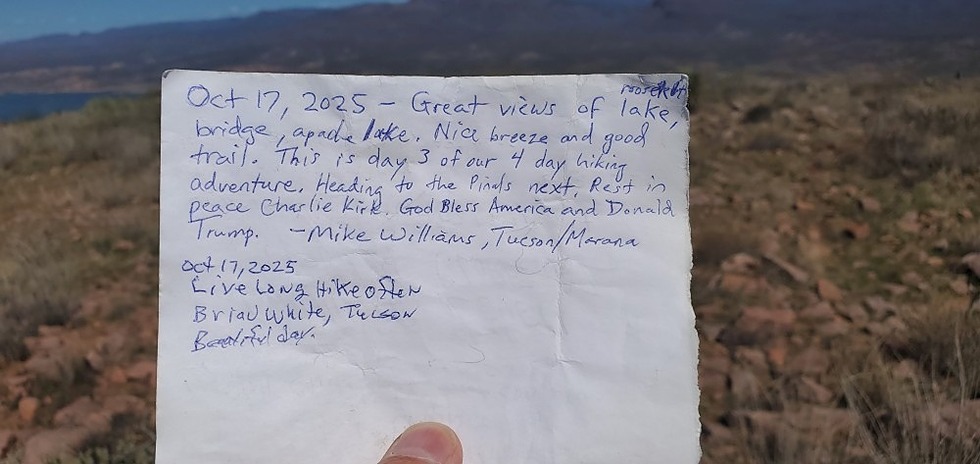 Oct 17, 2025 – Great views of roosevelt lake,
bridge, apache lake. Nice breeze and good
trail. This is day 3 of our 4 day hiking
adventure. Heading to the Pinals next. Rest in
peace Charlie Kirk. God Bless America and Donald
Trump. – Mike Williams, Tucson/Marana
Oct 17, 2025
Live Long Hike often
Brian White, Tucson
Beautiful day.